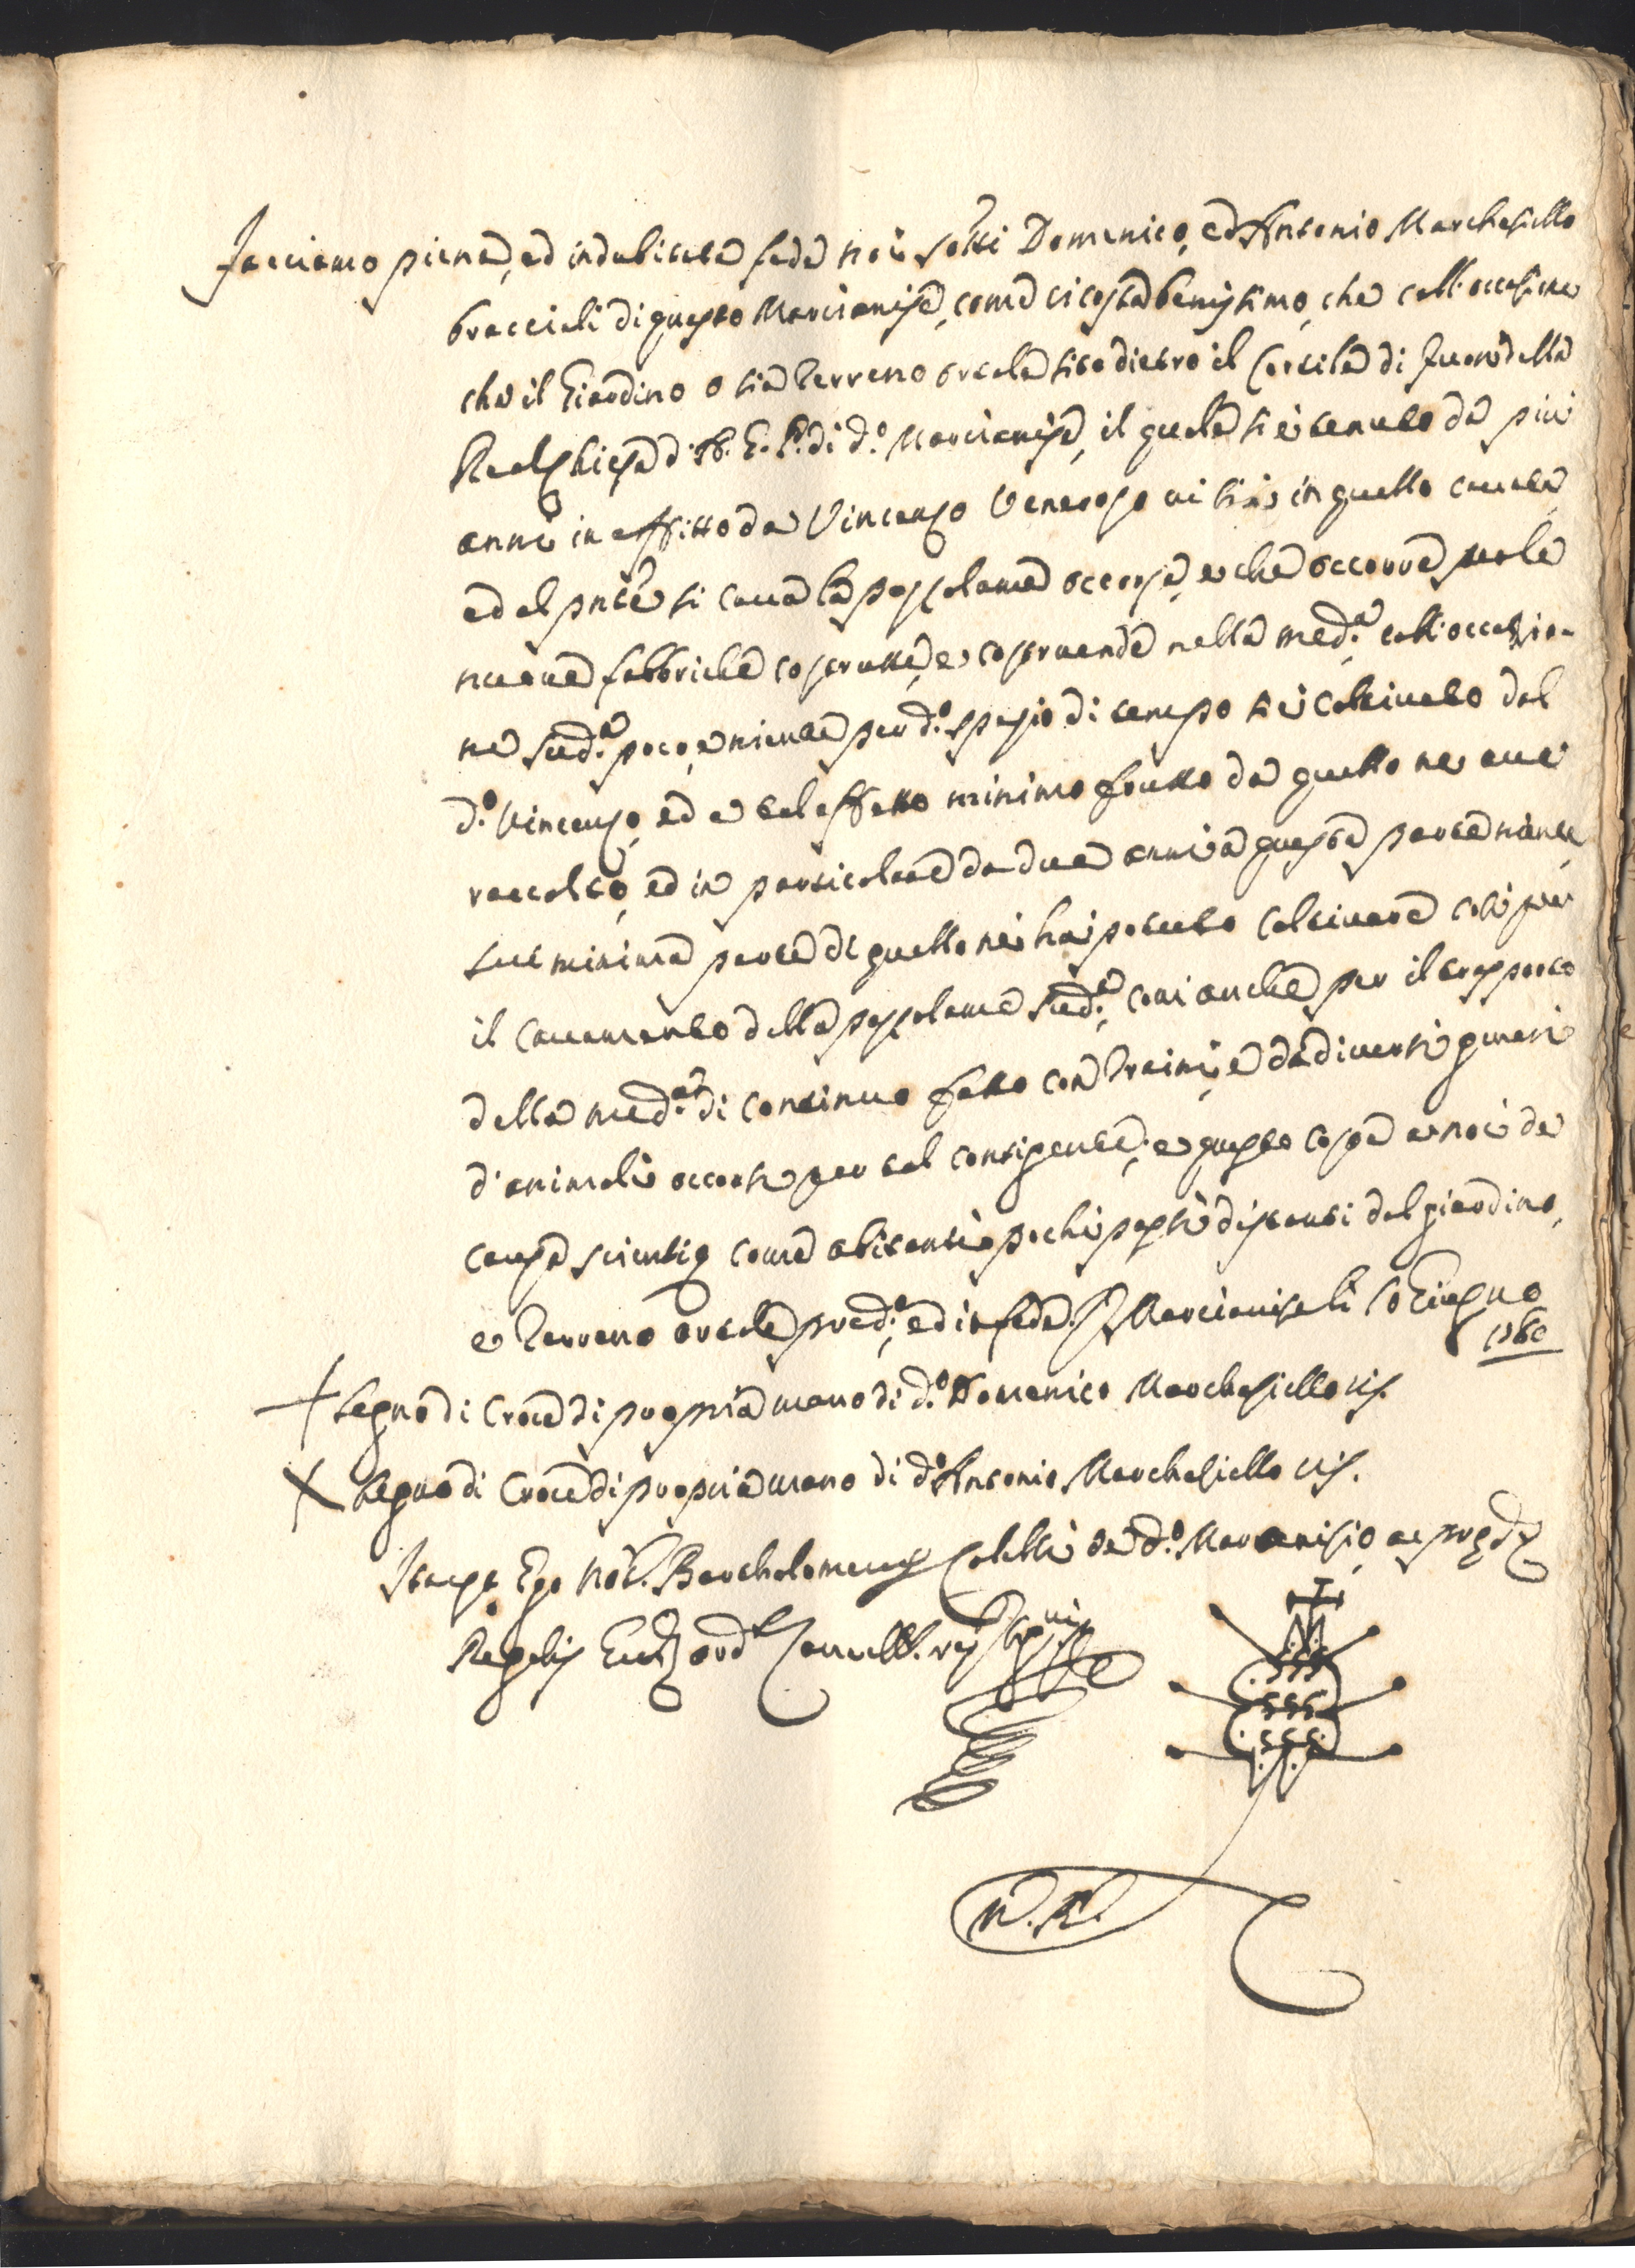 Facciamo piena, ed indubitata fede noi sotti Domenico, ed Antonio Marchesiello
bracciali di questo Marcianise, come ci costa benissimo, che coll'occasione
che il Giardino o sia terreno ortale sito dietro il Cortile di fuori della
Real Chiesa d. A. G. P. di d.º Marcianise, il quale si è tenuto da più
anni in affitto da Vincenzo Veneroso vi si è in quello cavata
ed al pnte si cava la pozzolame occorsa, e che occorre per le
nuove fabbriche costrutte, e costruende nella med.ª coll'occasio-
ne sud.ª poco, e niente per d.º spazio di tempo si è coltivato dal
d.º Vincenzo, ed a tal effetto minimo frutto da quello ne ave
raccolto, ed in particolare da due anni a questa parte niente,
sul minima parte di quello ne ha potuto coltivare così per
il cavamento della pozzolame sud.ª, come anche per il trasporto
della med.ª di continuo fatto con traini, e da diversi generi
d'animali occorsi per tal contigente; e questo costa a noi de
causa scientiæ come abitanti pochi passi distanti dal giardino,
e terreno ortale pred.º, ed in fede. Marcianise li 10 Giugno
1760
+ Segno di Croce di propria mano di d.º Domenico Marchesiello
+ Segno di Croce di propria mano di d.º Antonio Marchesiello
Itaque Ego Not. Bartholomeus Coletti de d.º Marcianisio
Regalis
N. R.